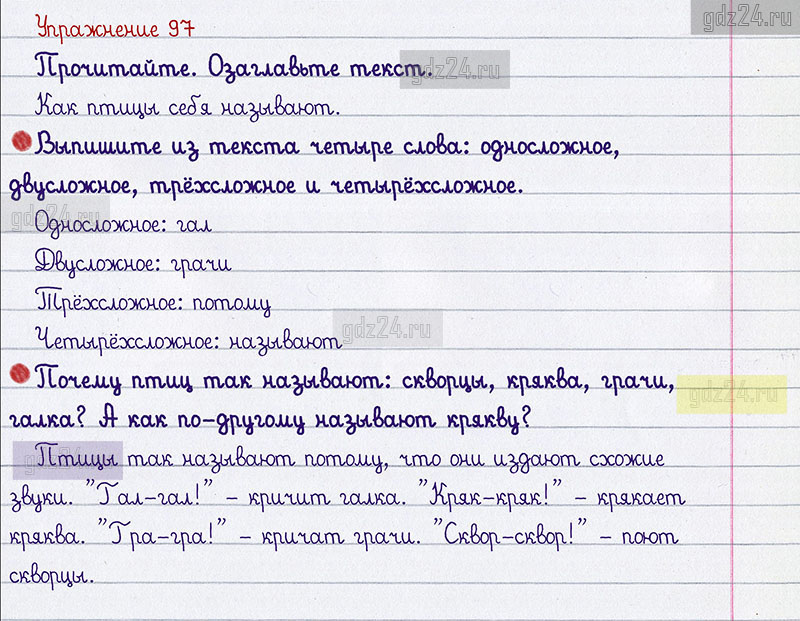 gdz24.ru
Упражнение 97
Прочитайте. Озаглавьте текст.
gdz24.ru
Как птицы себя называют.
Выпишите из текста четыре слова: односложное,
двусложное, трёхсложное и четырёхсложное.
gdz24.ru
Односложное: гал
Двусложное: грачи
Трёхсложное: потому
gdz24.ru
Четырёхсложное: называют
Почему птиц так называют: скворцы, кряква, грачи,
gdz24.ru
галка? А как по-другому называют крякву?
Птицы так называют потому, что они издают схожие
звуки. "Гал-гал!" - кричит галка. "Кряк-кряк!" - крякает
кряква. "Гра-гра!" - кричат грачи. "Сквор-сквор!" - поют
скворцы.